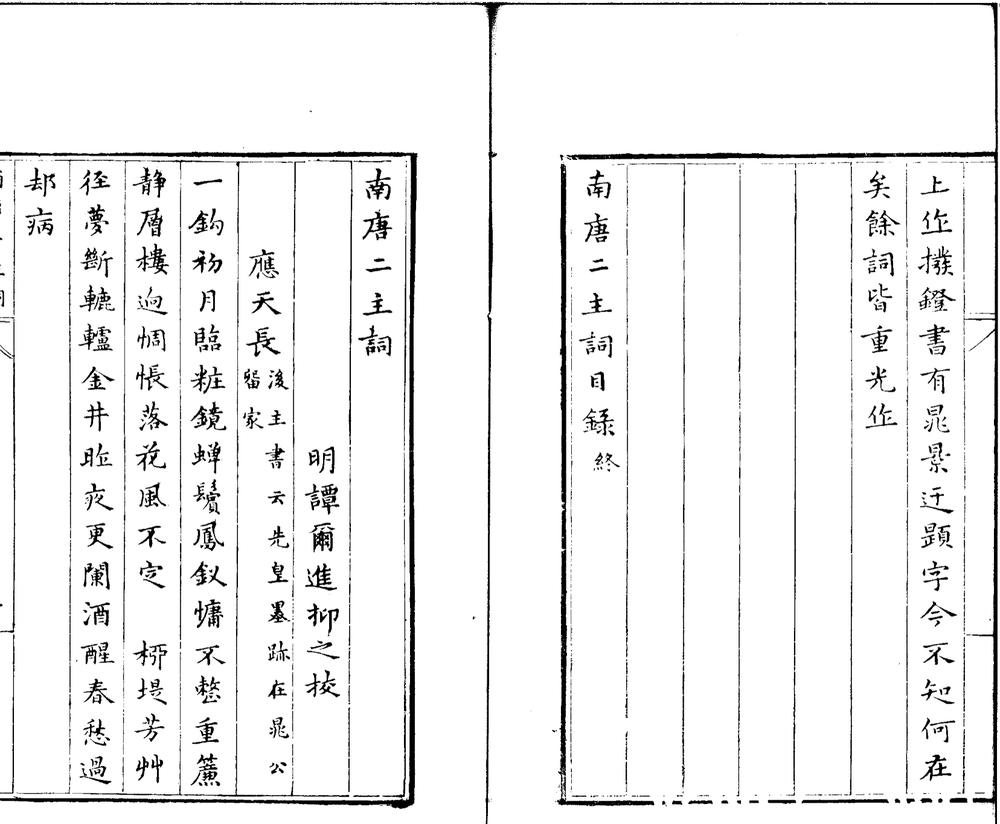 上作撥鐙書有晁景迂題字今不知何在
矣餘詞皆重光作
南唐二主詞目錄終
南唐二主詞
明譚爾進抑之校
應天長後主書云先皇墨跡在晁公留家
一鈎初月臨粧鏡蟬鬢鳳釵慵不整重簾
静層樓逈惆悵落花風不定　桺堤芳艸
徑夢斷轆轤金井昨夜更闌酒醒春愁過
却病